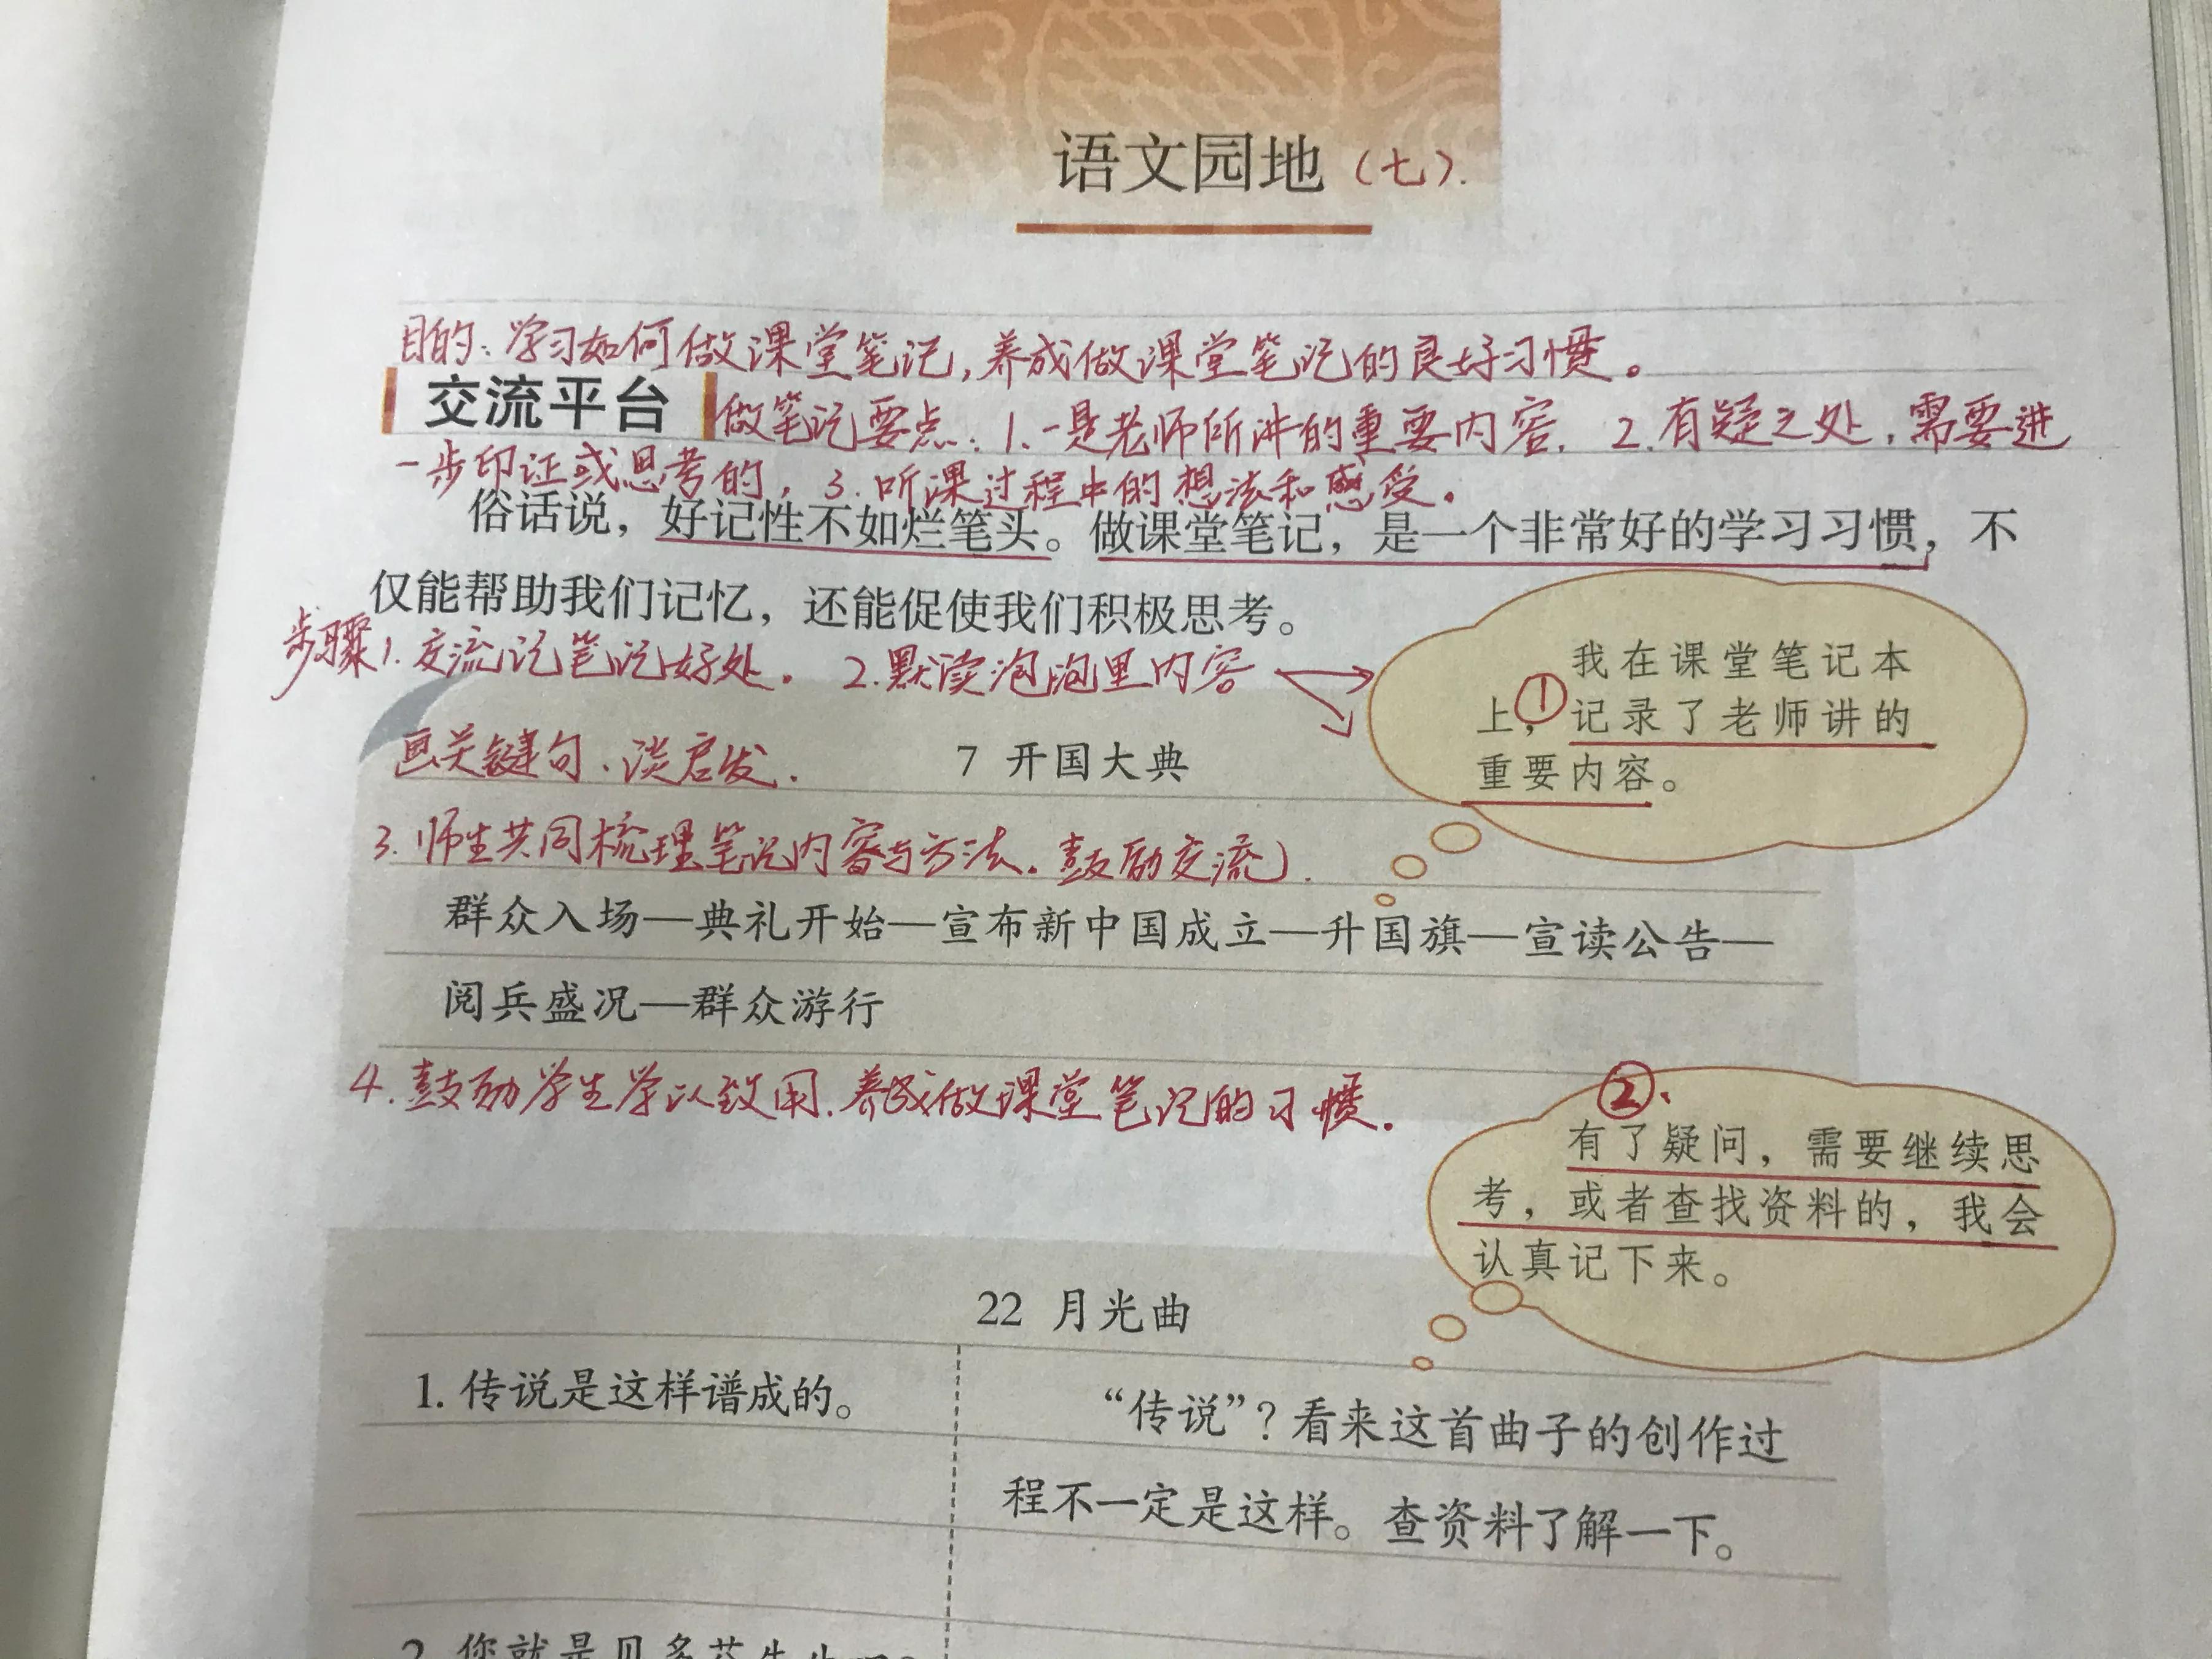 语文园地（七）.
目的：学习如何做课堂笔记，养成做课堂笔记的良好习惯。
交流平台 做笔记要点：1.一是老师所讲的重要内容. 2.有疑之处，需要进
一步印证或思考的，3.听课过程中的想法和感受。
俗话说，好记性不如烂笔头。做课堂笔记，是一个非常好的学习习惯，不
仅能帮助我们记忆，还能促使我们积极思考。
步骤1.交流记笔记好处。 2.默读泡泡里内容
我在课堂笔记本
上，①记录了老师讲的
重要内容。
画关键句、谈启发.
7 开国大典
3.师生共同梳理笔记内容与方法。鼓励交流）.
群众入场—典礼开始—宣布新中国成立—升国旗—宣读公告—
阅兵盛况—群众游行
4.鼓励学生学以致用.养成做课堂笔记的习惯.
②、
有了疑问，需要继续思
考，或者查找资料的，我会
认真记下来。
22 月光曲
1. 传说是这样谱成的。
“传说”？看来这首曲子的创作过
程不一定是这样。查资料了解一下。
2. 您就是贝多芬先生吧？